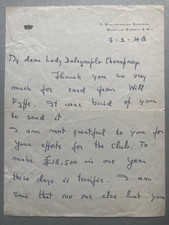 3-2-48
My dear Lady Dalrymple-Champneys
Thank you so very
much for card from Will
Fyffe. It was kind of you
to send it.
I am most grateful to you for
your efforts for the Club. To
make £18,500 in one year
these days is terrific. I am
sure that no one else but you